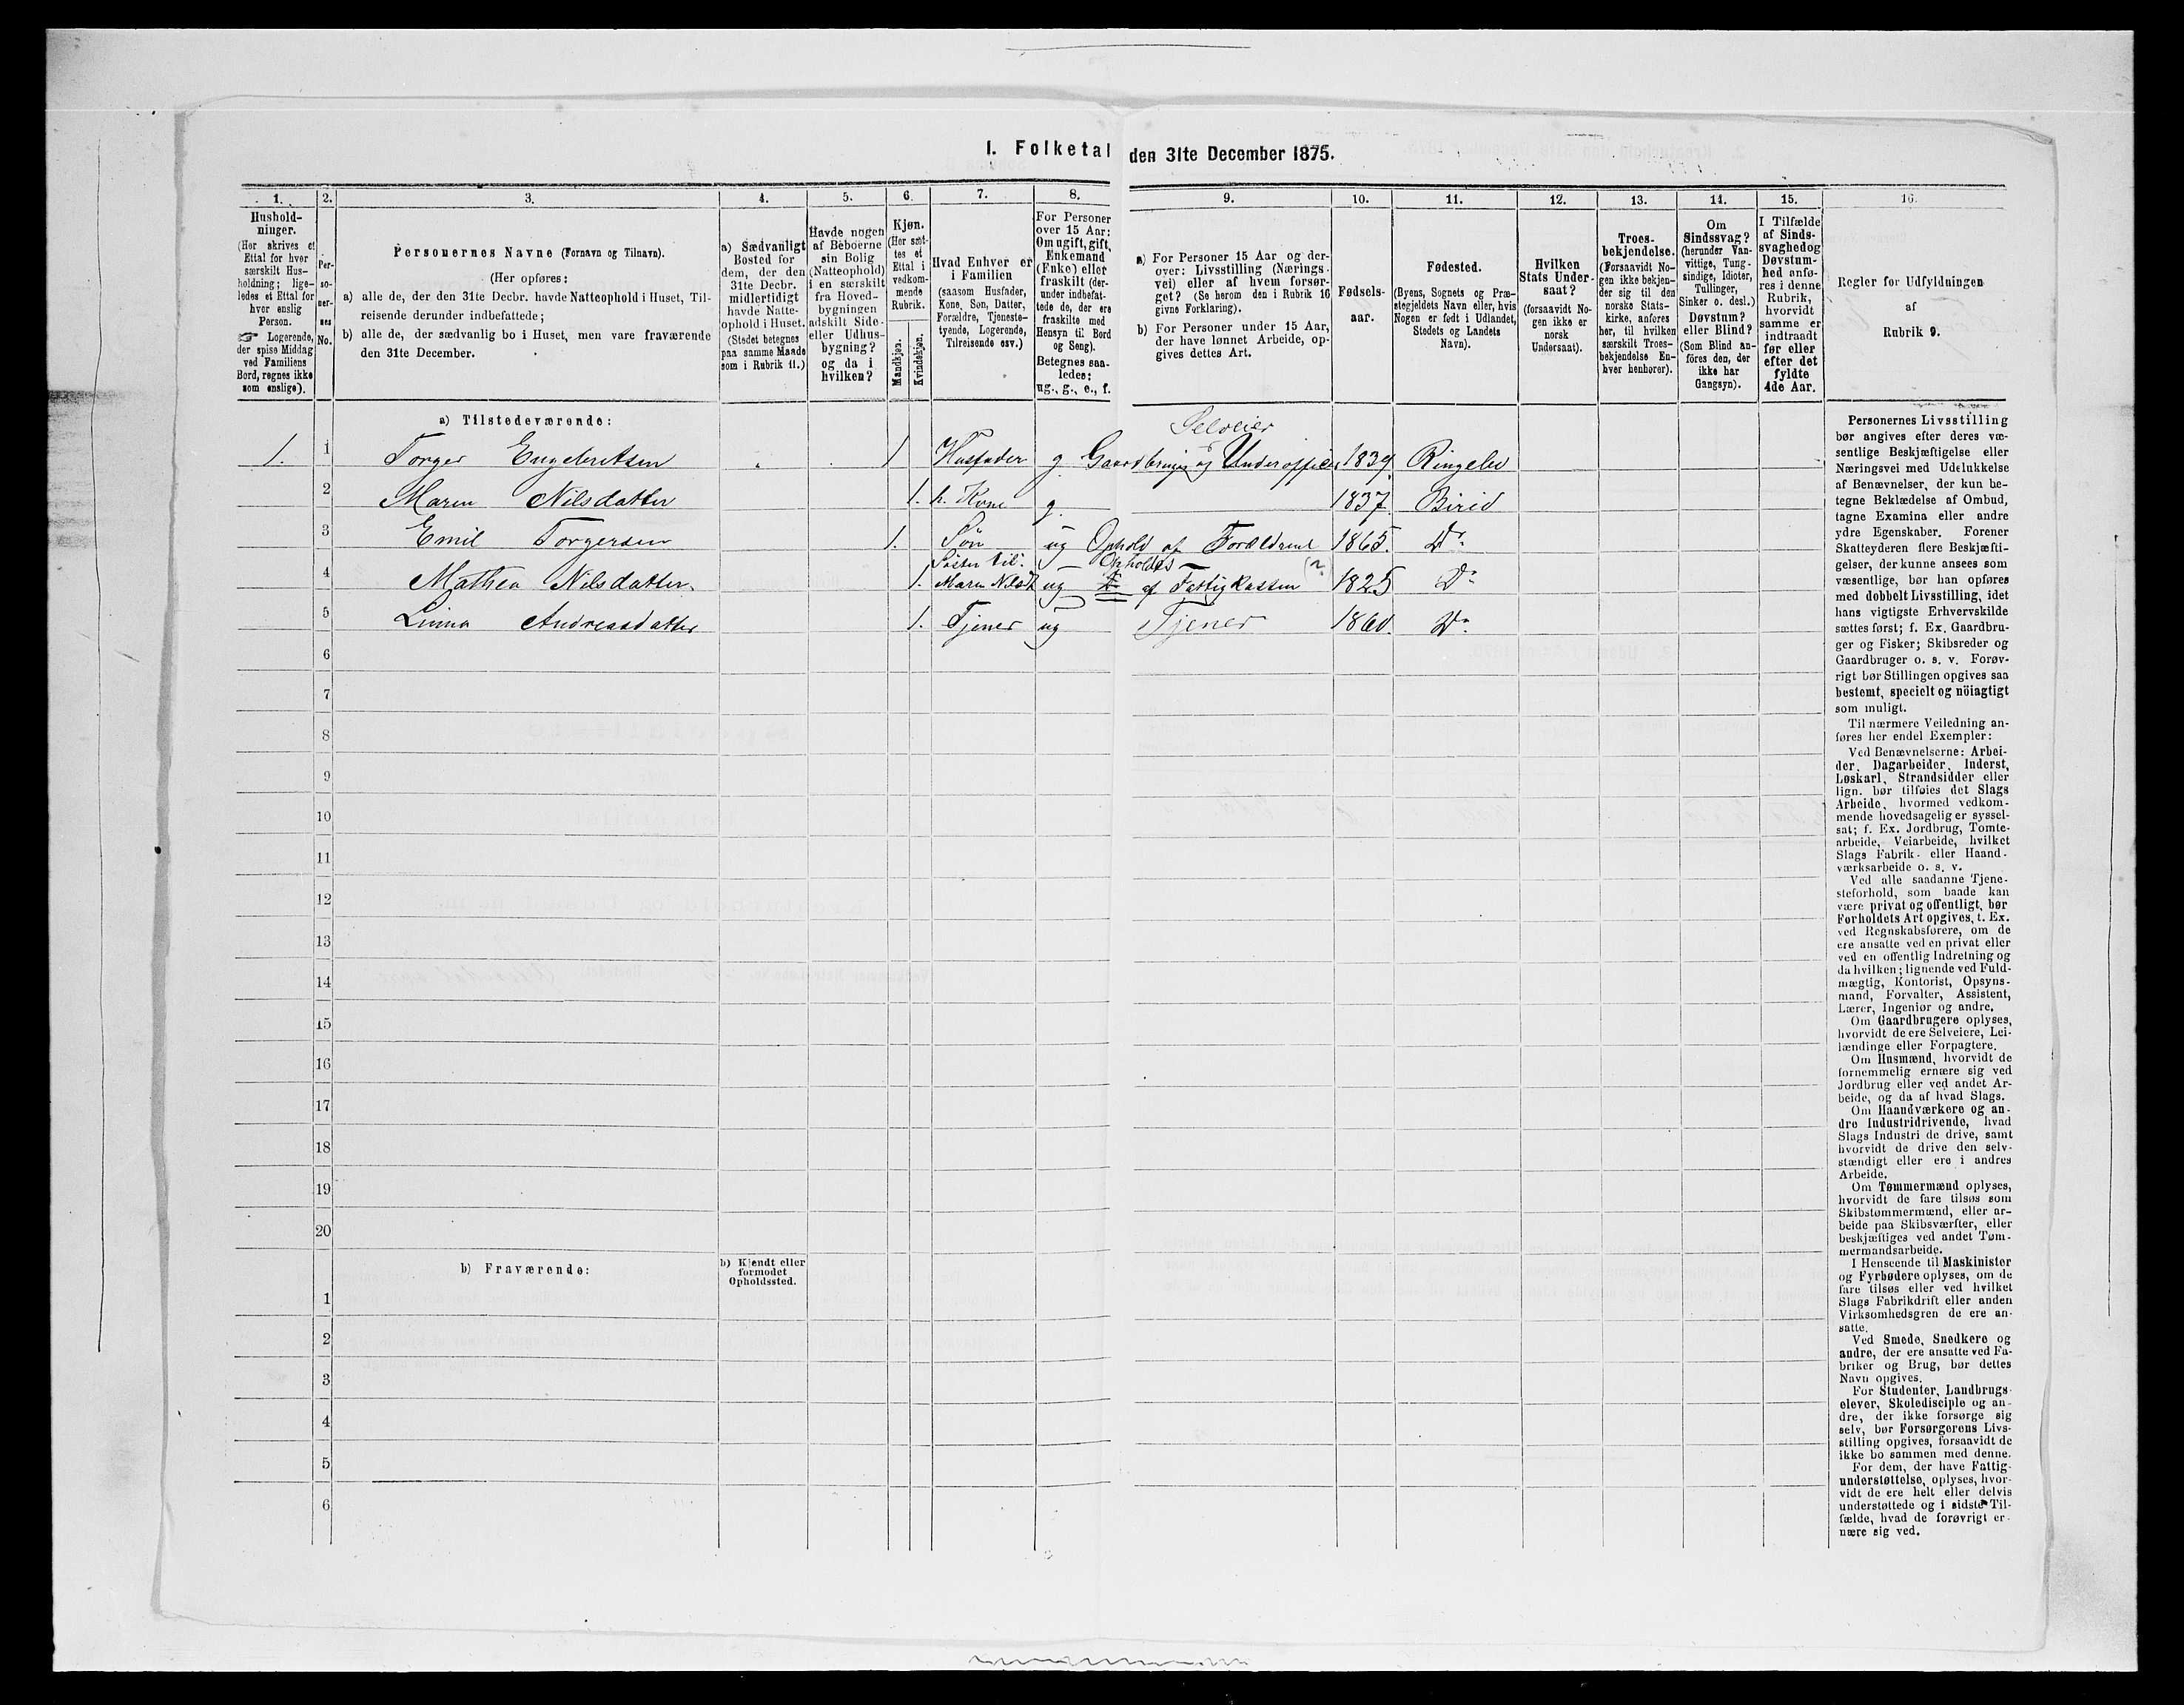 I. Folketal den 31te December 1875.
1. 2. 3. 4. 5. 6. 7. 8. 9. 10. 11. 12. 13. 14. 15. 16.
Hushold-
ninger.
(Her skrives et
Ettal for hver
særskilt Hus-
holdning; lige-
ledes et Ettal for
hver enslig
Person.
☞ Logerende,
der spise Middag
ved Familiens
Bord, regnes ikke
som enslige).
Per-
so-
ner-
nes
No.
Personernes Navne (Fornavn og Tilnavn).
(Her opføres:
a) alle de, der den 31te Decbr. havde Natteophold i Huset, Til-
reisende derunder indbefattede;
b) alle de, der sædvanlig bo i Huset, men vare fraværende
den 31te December.
a) Sædvanligt
Bosted for
dem, der den
31te Decbr.
midlertidigt
havde Natte-
ophold i Huset.
(Stedet betegnes
paa samme Maade
som i Rubrik 11.)
Havde nogen
af Beboerne
sin Bolig
(Natteophold)
i en særskilt
fra Hoved-
bygningen
adskilt Side-
eller Udhus-
bygning?
og da i
hvilken?
Kjøn.
(Her sæt-
tes et
Ettal i
vedkom-
mende
Rubrik.
Mandkjøn.
Kvindekjøn.
Hvad Enhver er
i Familien
(saasom Husfader,
Kone, Søn, Datter,
Forældre, Tjeneste-
tyende, Logerende,
Tilreisende osv.)
For Personer
over 15 Aar:
Om ugift, gift,
Enkemand
(Enke) eller
fraskilt (der-
under indbefat-
tede de, der ere
fraskilte med
Hensyn til Bord
og Seng).
Betegnes saa-
ledes:
ug., g., e., f.
a) For Personer 15 Aar og der-
over: Livsstilling (Nærings-
vei) eller af hvem forsør-
get? (Se herom den i Rubrik 16
givne Forklaring).
b) For Personer under 15 Aar,
der have lønnet Arbeide, op-
gives dettes Art.
Fødsels-
aar.
Fødested.
(Byens, Sognets og Præ-
stegjeldets Navn eller, hvis
Nogen er født i Udlandet,
Stedets og Landets
Navn).
Hvilken
Stats Under-
saat?
(forsaavidt No-
gen ikke er
norsk
Undersaat).
Troes-
bekjendelse.
(Forsaavidt No-
gen ikke bekjen-
der sig til den
norske Stats-
kirke, anføres
her, til hvilken
særskilt Troes-
bekjendelse En-
hver henhører).
Om
Sindssvag?
(herunder Van-
vittige, Tung-
sindige, Idioter,
Tullinger,
Sinker o. desl.)
Døvstum?
eller Blind?
(Som Blind an-
föres den, der
ikke har
Gangsyn).
I Tilfælde
af Sinds-
svaghed og
Døvstum-
hed anfø-
res i denne
Rubrik,
hvorvidt
samme er
indtraadt
før eller
efter det
fyldte
4de Aar.
Regler for Udfyldningen
af
Rubrik 9.
a) Tilstedeværende:
Selveier
1. 1 Torger Engebretsen 1 Husfader g. Gaardbruger og Underofficer 1839 Ringebo
2 Maren Nilsdatter 1. h. Kone g. 1837. Birid
3 Emil Torgersen 1. Søn ug Ophold af Forældrene 1865. Do
Søster til: Opholdes
4 Mathea Nilsdatter 1. Maren Nilsd ug af Fattigkassen 1825 Do
5 Linna Andreasdatter 1. Tjener ug Tjener 1860. Do
6
7
8
9
10
11
12
13
14
15
16
17
18
19
20
b) Fraværende:
b) Kjendt eller
formodet
Opholdssted.
1
2
3
4
5
6
Personernes Livsstilling
bør angives efter deres væ-
sentlige Beskjæftigelse eller
Næringsvei med Udelukkelse
af Benævnelser, der kun be-
tegne Beklædelse af Ombud,
tagne Examina eller andre
ydre Egenskaber. Forener
Skatteyderen flere Beskjæfti-
gelser, der kunne ansees som
væsentlige, bør han opføres
med dobbelt Livsstilling, idet
hans vigtigste Erhvervskilde
sættes først; f. Ex. Gaardbru-
ger og Fisker; Skibsreder og
Gaardbruger o. s. v. Forøv-
rigt bør Stillingen opgives saa
bestemt, specielt og nöiagtigt
som muligt.
Til nærmere Veiledning an-
føres her endel Exempler:
Ved Benævnelserne: Arbei-
der, Dagarbeider, Inderst,
Løskarl, Strandsidder eller
lign. bør tilföies det Slags
Arbeide, hvormed vedkom-
mende hovedsagelig er syssel-
sat; f. Ex. Jordbrug, Tomte-
arbeide, Veiarbeide, hvilket
Slags Fabrik- eller Haand-
værksarbeide o. s. v.
Ved alle saadanne Tjene-
steforhold, som baade kan
være privat og offentligt, bør
Forholdets Art opgives, t. Ex.
ved Regnskabsførere, om de
ere ansatte ved en privat eller
ved en offentlig Indretning og
da hvilken; lignende ved Fuld-
mægtig, Kontorist, Opsyns-
mand, Forvalter, Assistent,
Lærer, Ingeniør og andre.
Om Gaardbrugere oplyses,
hvorvidt de ere Selveiere, Lei-
lændinge eller Forpagtere.
Om Husmænd, hvorvidt de
fornemmelig ernære sig ved
Jordbrug eller ved andet Ar-
beide, og da af hvad Slags.
Om Haandværkere og an-
dre Industridrivende, hvad
Slags Industri de drive, samt
hvorvidt de drive den selv-
stændigt eller ere i andres
Arbeide.
Om Tømmermænd oplyses,
hvorvidt de fare tilsøs som
Skibstømmermænd, eller ar-
beide paa Skibsværfter, eller
beskjæftiges ved andet Tøm-
mermandsarbeide.
I Henseende til Maskinister
og Fyrbødere oplyses, om de
fare tilsøs eller ved hvilket
Slags Fabrikdrift eller anden
Virksomhedsgren de ere an-
satte.
Ved Smede, Snedkere og
andre, der ere ansatte ved Fa-
briker og Brug, bør dettes
Navn opgives.
For Studenter, Landbrugs-
elever, Skoledisciple og an-
dre, der ikke forsørge sig
selv, bør Forsørgerens Livs-
stilling opgives, forsaavidt de
ikke bo sammen med denne.
For dem, der have Fattig-
understøttelse, oplyses, hvor-
vidt de ere helt eller delvis
understøttede og i sidste Til-
fælde, hvad de forøvrigt er-
nære sig ved.